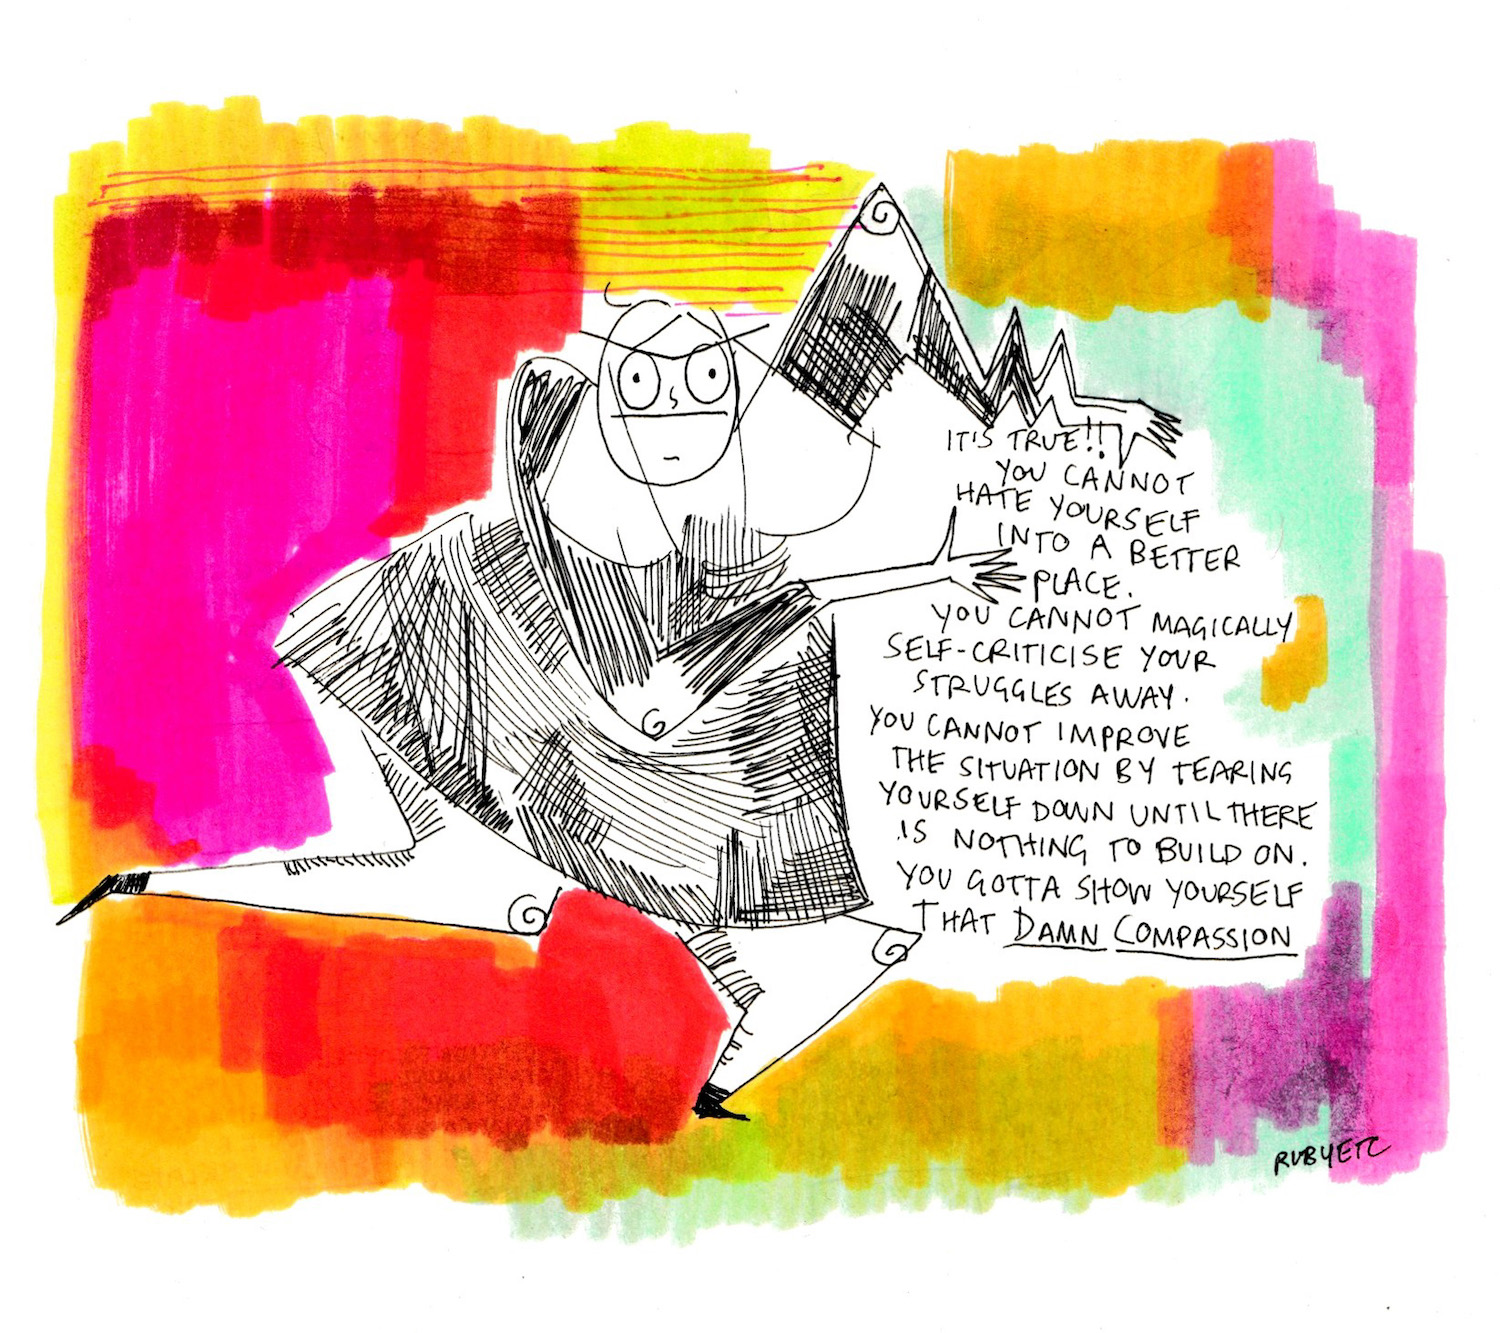 IT'S TRUE!!
YOU CANNOT
HATE YOURSELF
INTO A BETTER
PLACE.
YOU CANNOT MAGICALLY
SELF-CRITICISE YOUR
STRUGGLES AWAY.
YOU CANNOT IMPROVE
THE SITUATION BY TEARING
YOURSELF DOWN UNTIL THERE
IS NOTHING TO BUILD ON.
YOU GOTTA SHOW YOURSELF
THAT DAMN COMPASSION
RUBYETC